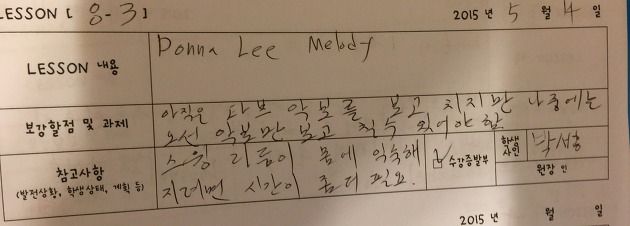 LESSON [ 8-3 ] 2015 년 5 월 4 일
LESSON 내용 Donna Lee Melody
보강할점 및 과제 아직은 타브 악보를 보고 치지만 나중에는
오선 악보만 보고 칠수 있어야 함
참고사항 스윙 리듬이 몸에 익숙해
(발전상황, 학생상태, 계획 등) 지려면 시간이 좀더 필요.
수강증발부
학생사인
원장 인
2015 년 월 일